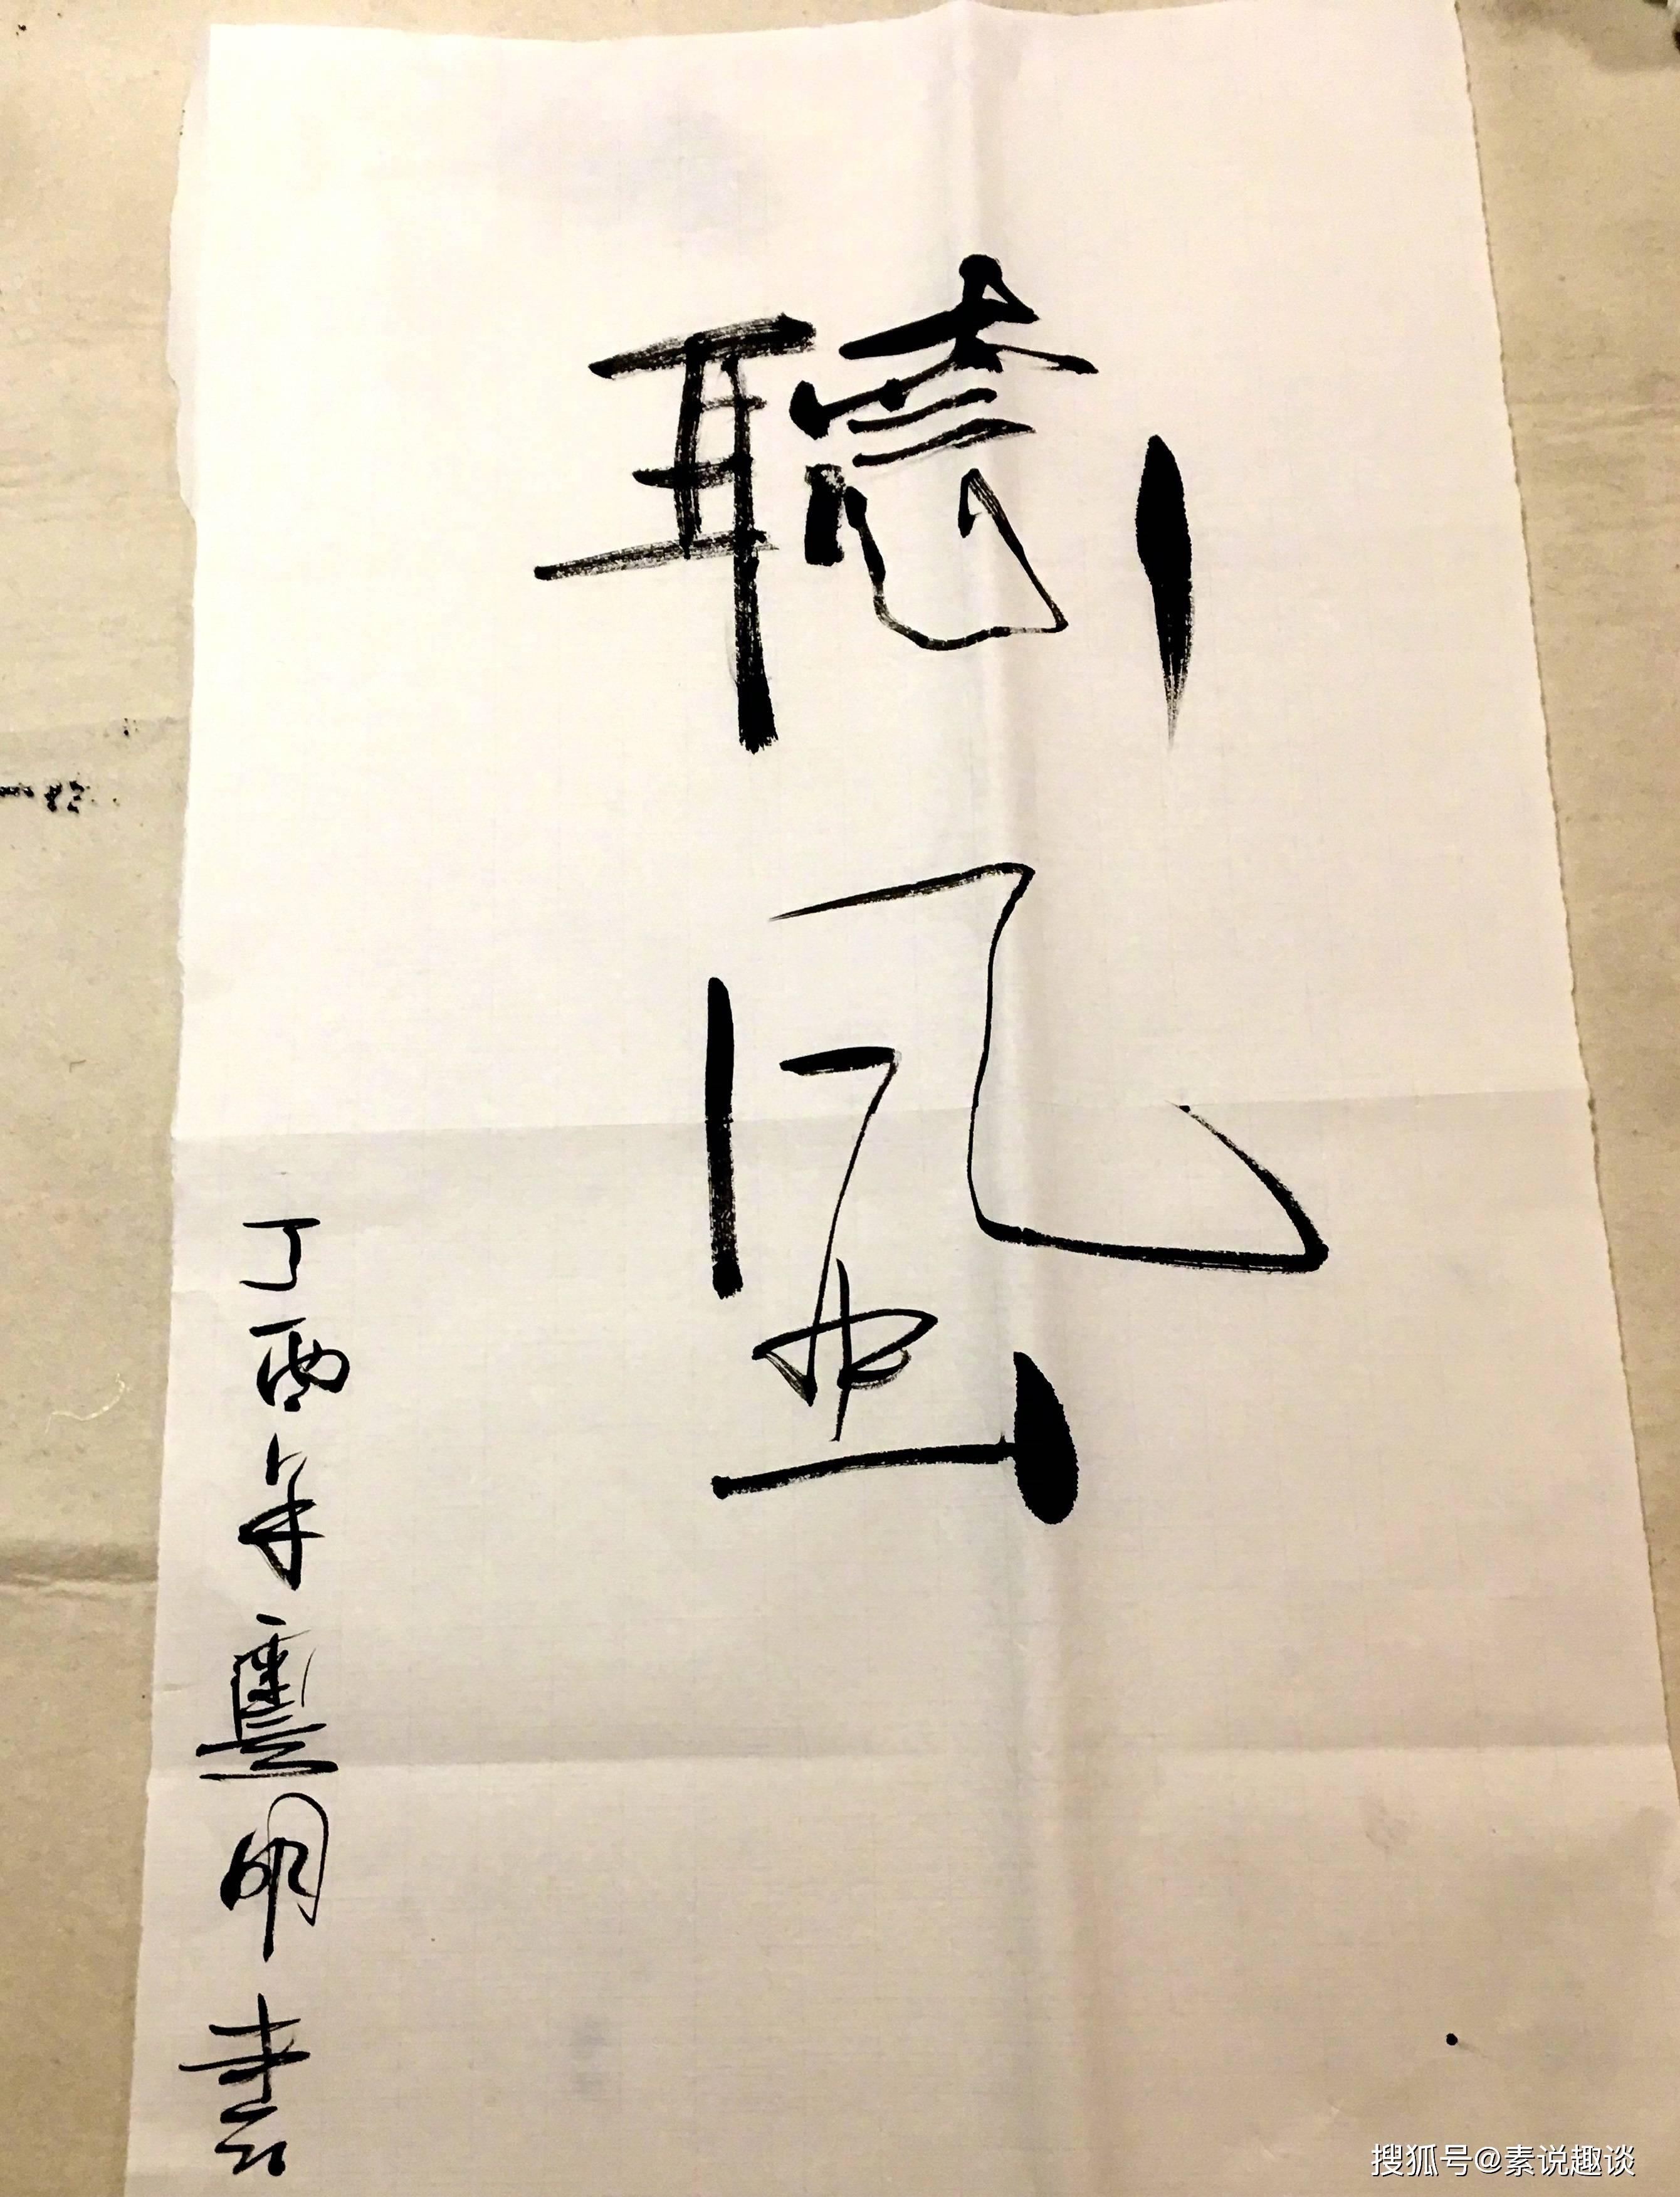 聽風
丁酉年豐明書
搜狐号@素说趣谈